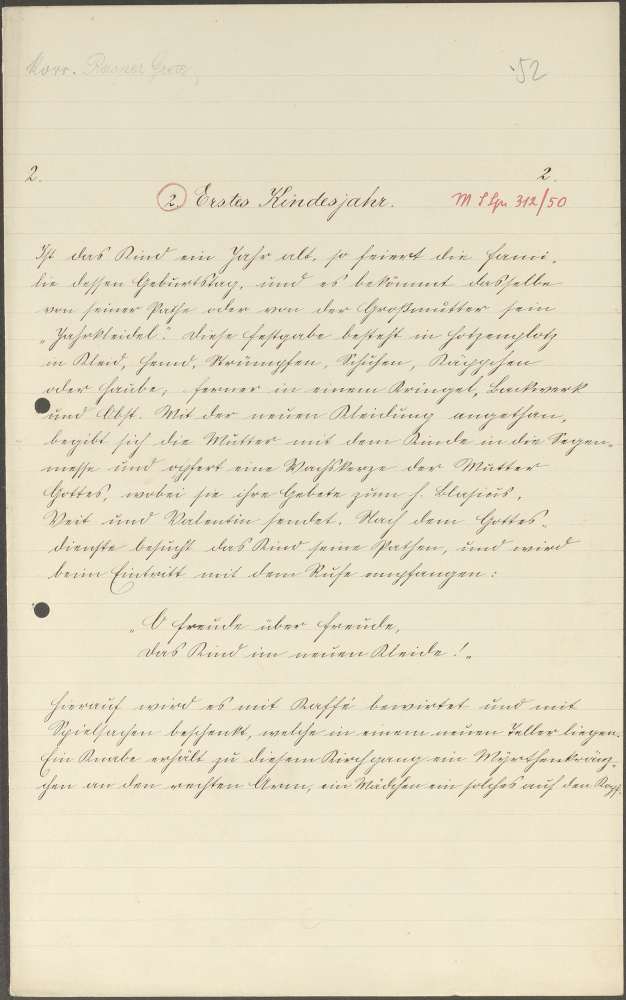 Korr.
52
2.
2.
2. Erstes Kindesjahr.
312/50
Ist das Kind ein Jahr alt, so feiert die Fami-
lie dessen Geburtstag, und es bekömmt dasselbe
von seiner Pathe oder von der Großmutter sein
„Jahrkleidel“. Diese Festgabe besteht in Hotzenplotz
in Kleid, Hemd, Strümpfen, Schuhen, Käppchen
oder Haube, ferner in einem Kringel, Backwerk
und Obst. Mit der neuen Kleidung angethan,
begibt sich die Mutter mit dem Kinde in die Segen-
messe und opfert eine Wachskerze der Mutter
Gottes, wobei sie ihre Gebete zum h. Blasius,
Veit und Valentin sendet. Nach dem Gottes-
dienste besucht das Kind seine Pathen, und wird
beim Eintritt mit dem Rufe empfangen:
„O Freude über Freude,
Das Kind im neuen Kleide!„
Hierauf wird es mit Kaffé bewirtet und mit
Spielsachen beschenkt, welche in einem neuen Teller liegen.
Ein Knabe erhält zu diesem Kirchgang ein Myrthenkränz-
chen an den rechten Arm, ein Mädchen ein solches auf den Kopf.